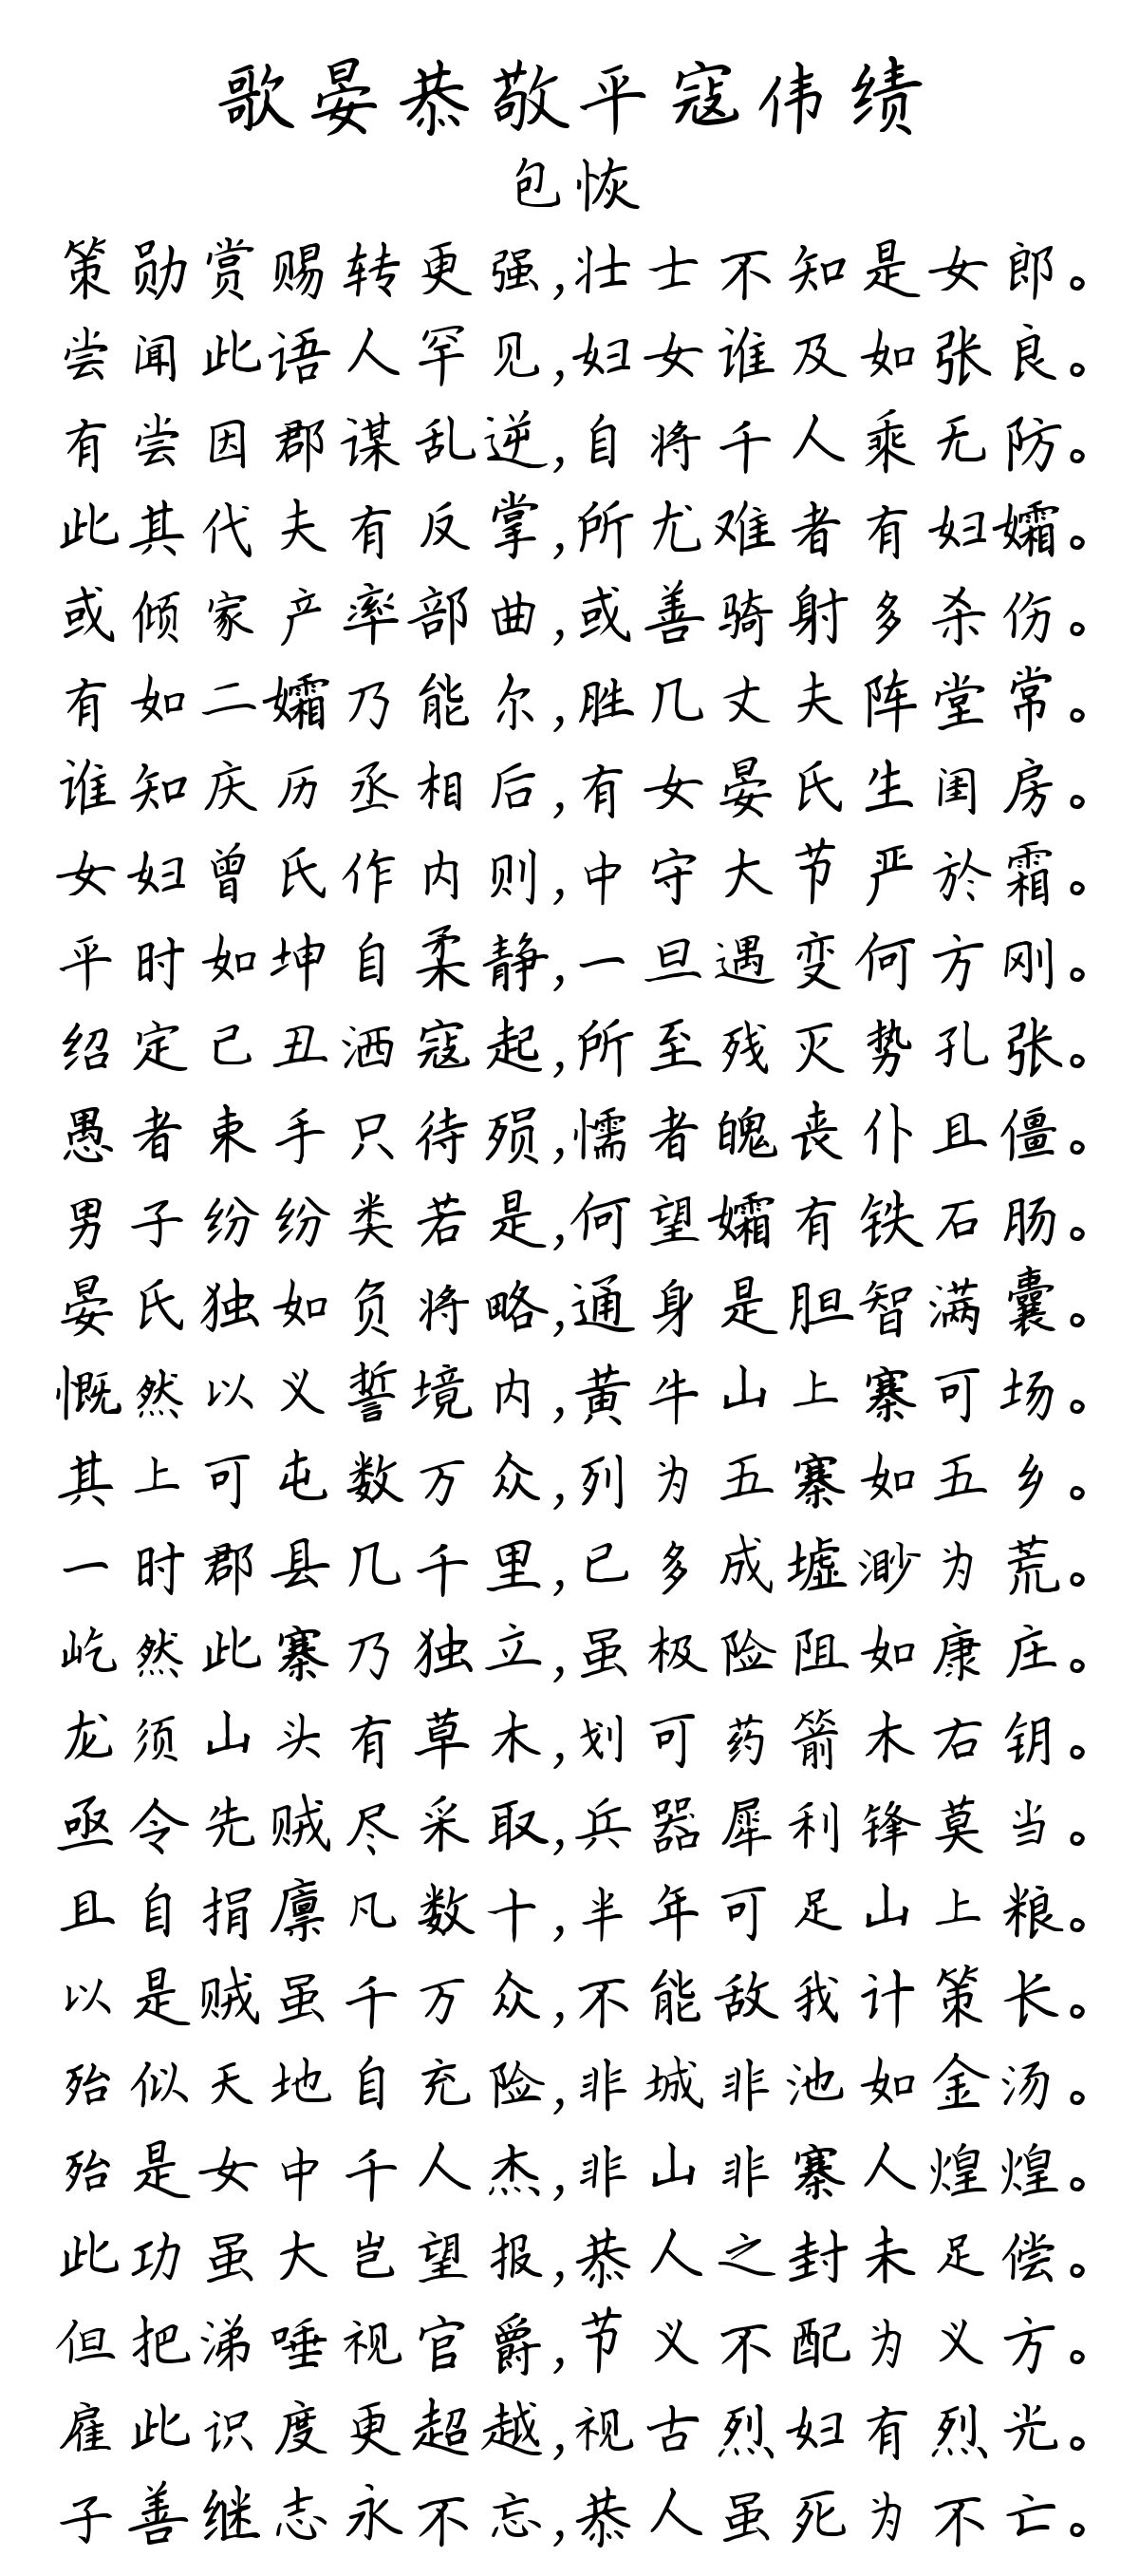 歌晏恭敬平寇伟绩
包恢
策勋赏赐转更强,壮士不知是女郎。
尝闻此语人罕见,妇女谁及如张良。
有尝因郡谋乱逆,自将千人乘无防。
此其代夫有反掌,所尤难者有妇孀。
或倾家产率部曲,或善骑射多杀伤。
有如二孀乃能尔,胜几丈夫阵堂常。
谁知庆历丞相后,有女晏氏生闺房。
女妇曾氏作内则,中守大节严於霜。
平时如坤自柔静,一旦遇变何方刚。
绍定己丑洒寇起,所至残灭势孔张。
愚者束手只待殒,懦者魄丧仆且僵。
男子纷纷类若是,何望孀有铁石肠。
晏氏独如负将略,通身是胆智满囊。
慨然以义誓境内,黄牛山上寨可场。
其上可屯数万众,列为五寨如五乡。
一时郡县几千里,已多成墟渺为荒。
屹然此寨乃独立,虽极险阻如康庄。
龙须山头有草木,划可药箭木右钥。
亟令先贼尽采取,兵器犀利锋莫当。
且自捐廪凡数十,半年可足山上粮。
以是贼虽千万众,不能敌我计策长。
殆似天地自充险,非城非池如金汤。
殆是女中千人杰,非山非寨人煌煌。
此功虽大岂望报,恭人之封未足偿。
但把涕唾视官爵,节义不配为义方。
雇此识度更超越,视古烈妇有烈光。
子善继志永不忘,恭人虽死为不亡。